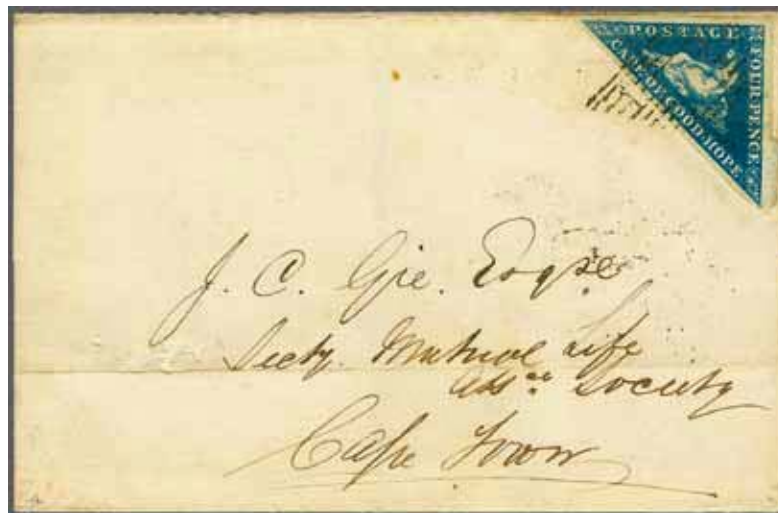 POSTAGE
FOUR PENCE
CAPE OF GOOD HOPE
J. C. Gie. Esqre
Secty. Mutual Life
Assce. Society
Cape Town